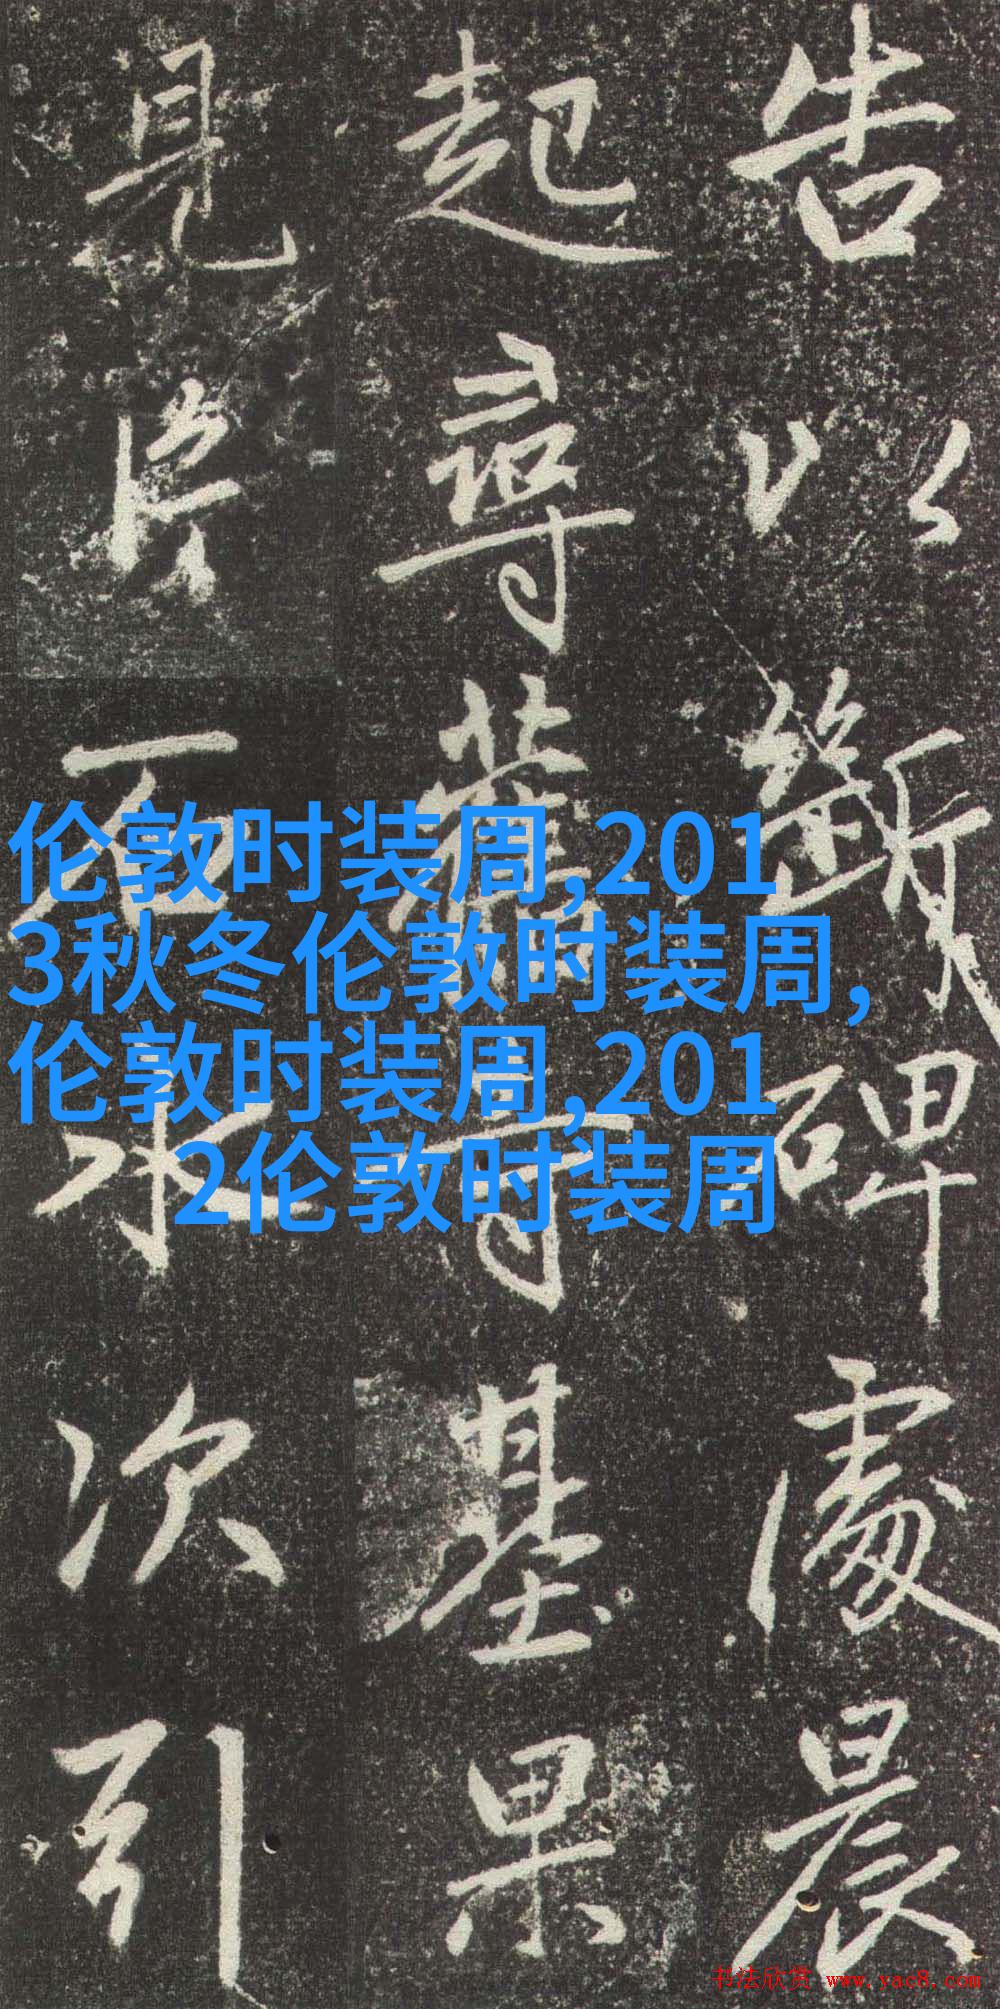 告以斷碑處晨
起尋舊市基果
見片石水次引
伦敦时装周,201
3秋冬伦敦时装周,
伦敦时装周,201
2伦敦时装周
书法欣赏 www.yac8.com